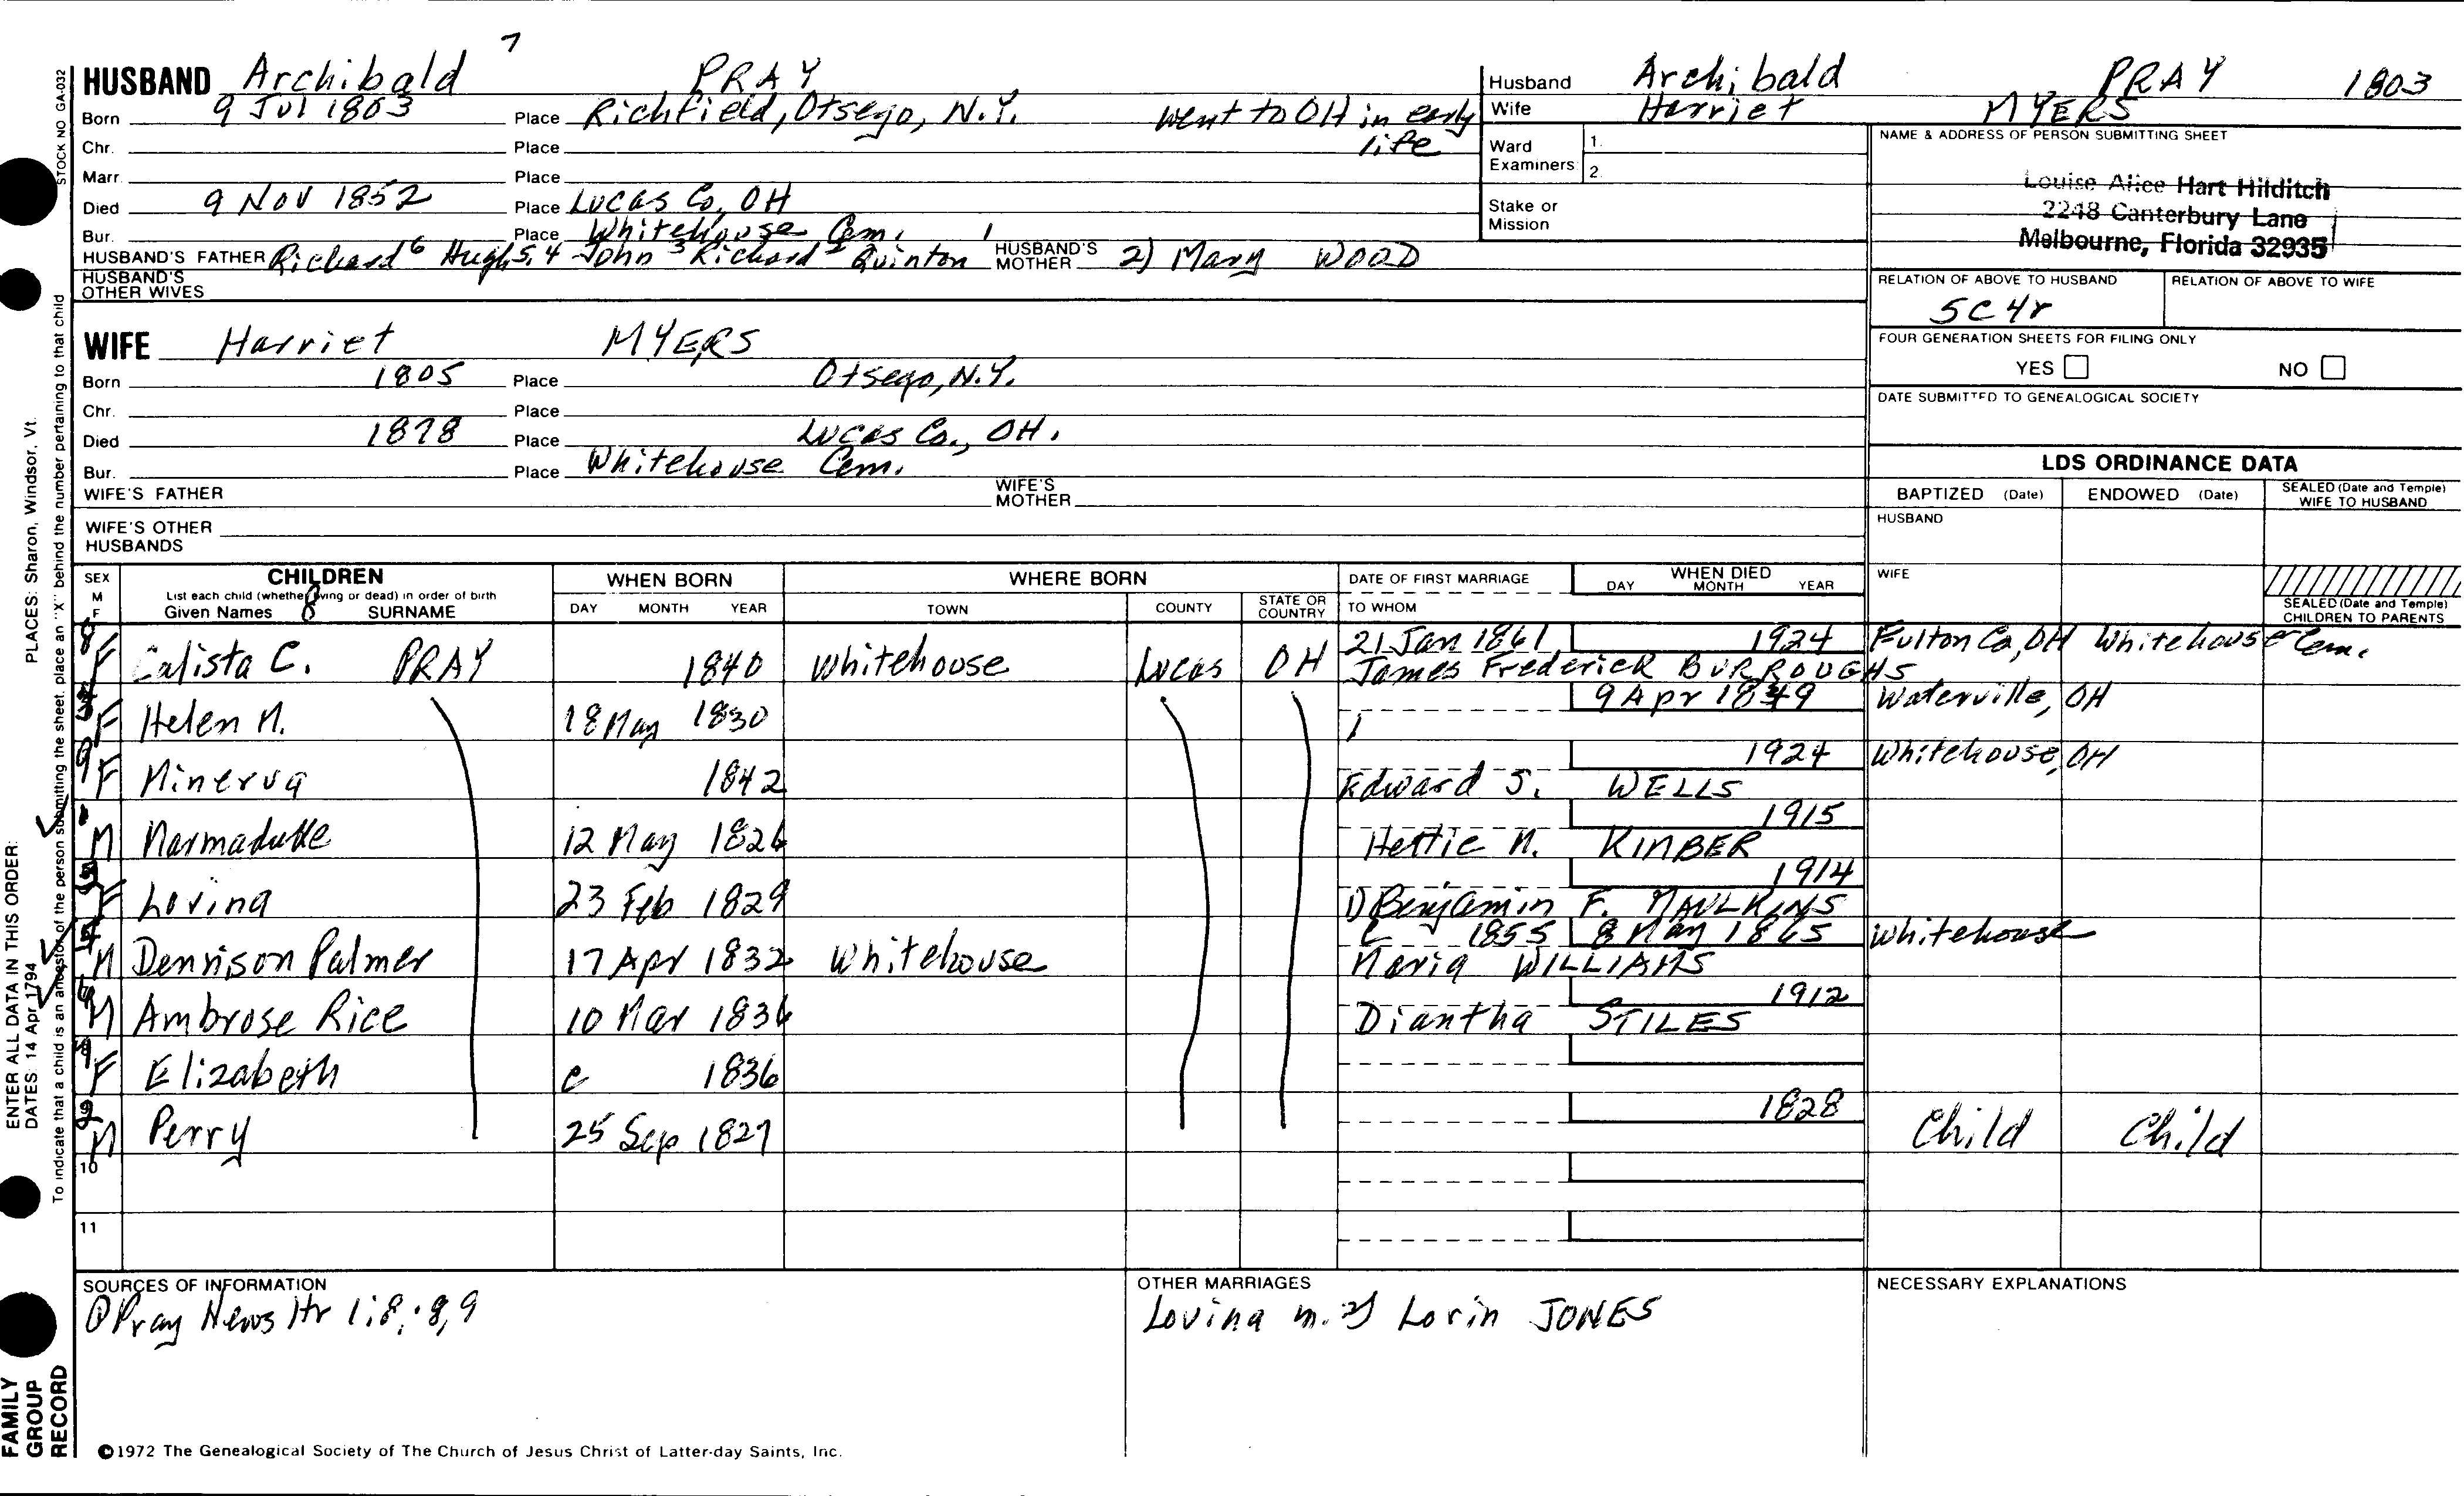 7
HUSBAND Archibald PRAY
Born 9 Jul 1803 Place Richfield, Otsego, N.Y. went to OH in early life
Chr. Place
Marr. Place
Died 9 Nov 1852 Place Lucas Co, OH
Bur. Place Whitehouse Cem.
HUSBAND'S FATHER Richard 6 Hugh 5,4 John 3 Richard 2 Quinton 1 HUSBAND'S MOTHER 2) Mary WOOD
HUSBAND'S OTHER WIVES
WIFE Harriet MYERS
Born 1805 Place Otsego, N.Y.
Chr. Place
Died 1878 Place Lucas Co., OH.
Bur. Place Whitehouse Cem.
WIFE'S FATHER WIFE'S MOTHER
WIFE'S OTHER HUSBANDS
Husband Archibald PRAY 1803
Wife Harriet MYERS
Ward Examiners 1. 2.
Stake or Mission
NAME & ADDRESS OF PERSON SUBMITTING SHEET
Louise Alice Hart Hilditch
2248 Canterbury Lane
Melbourne, Florida 32935
RELATION OF ABOVE TO HUSBAND RELATION OF ABOVE TO WIFE
5C4r
FOUR GENERATION SHEETS FOR FILING ONLY
YES NO
DATE SUBMITTED TO GENEALOGICAL SOCIETY
LDS ORDINANCE DATA
BAPTIZED (Date) ENDOWED (Date) SEALED (Date and Temple) WIFE TO HUSBAND
HUSBAND
WIFE
SEALED (Date and Temple) CHILDREN TO PARENTS
SEX M F CHILDREN WHEN BORN WHERE BORN DATE OF FIRST MARRIAGE WHEN DIED
List each child (whether living or dead) in order of birth
Given Names SURNAME DAY MONTH YEAR TOWN COUNTY STATE OR COUNTRY TO WHOM DAY MONTH YEAR
8 F Calista C. PRAY 1840 Whitehouse Lucas OH 21 Jan 1861 James Frederick BURROUGHS 1924 Fulton Co, OH Whitehouse Cem.
F Helen M. 18 May 1830 9 Apr 1849 Waterville, OH
9 F Minerva 1842 Edward S. WELLS 1924 Whitehouse, OH
1 M Marmaduke 12 May 1826 Hettie M. KIMBER 1915
3 F Lovina 23 Feb 1829 1) Benjamin F. MAULKINS 1914
5 M Dennison Palmer 17 Apr 1832 Whitehouse c 1855 Maria WILLIAMS 8 May 1865 Whitehouse
6 M Ambrose Rice 10 Mar 1836 Diantha STILES 1912
F Elizabeth c 1836
2 M Perry 25 Sep 1827 1828 Child Child
10
11
SOURCES OF INFORMATION
① Pray News ltr 1:8:8,9
OTHER MARRIAGES
Lovina m. 2) Lorin JONES
NECESSARY EXPLANATIONS
©1972 The Genealogical Society of The Church of Jesus Christ of Latter-day Saints, Inc.
STOCK NO GA-032
ENTER ALL DATA IN THIS ORDER:
DATES: 14 Apr 1794 PLACES: Sharon, Windsor, Vt.
To indicate that a child is an ancestor of the person submitting the sheet, place an "X" behind the number pertaining to that child
FAMILY GROUP RECORD